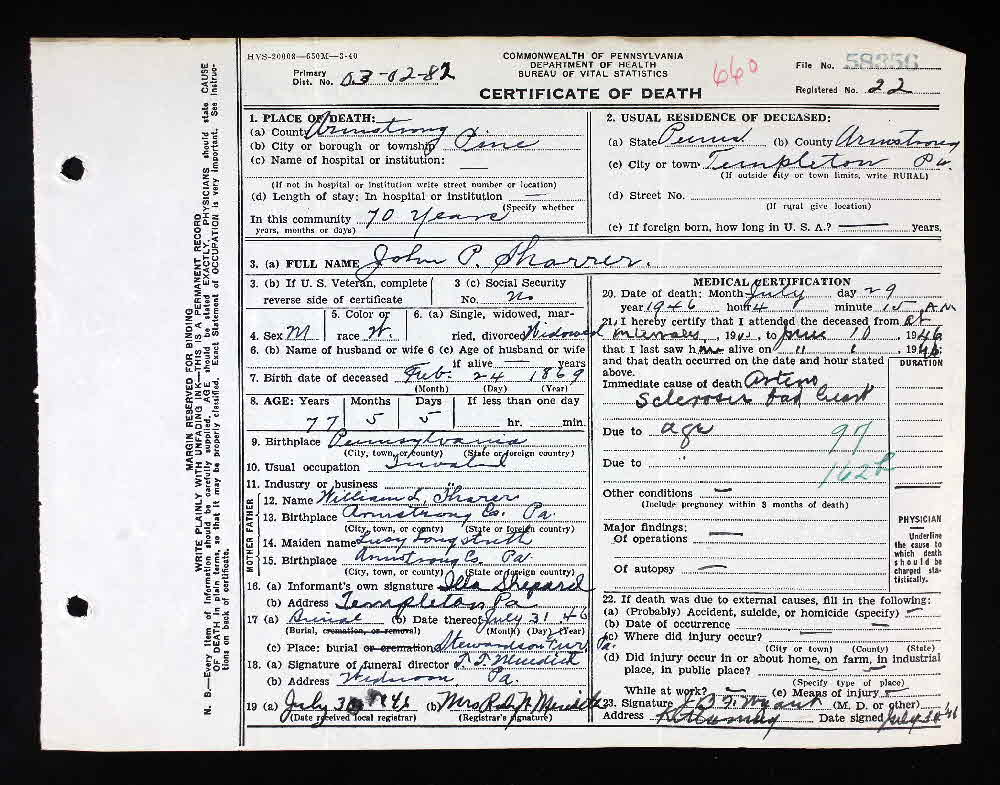 HVS-20008—650M—3-40
COMMONWEALTH OF PENNSYLVANIA
DEPARTMENT OF HEALTH
BUREAU OF VITAL STATISTICS
CERTIFICATE OF DEATH
Primary Dist. No. 03-02-82
660
File No. 58356
Registered No. 22
1. PLACE OF DEATH:
(a) County Armstrong
(b) City or borough or township Pine
(c) Name of hospital or institution: —
(If not in hospital or institution write street number or location)
(d) Length of stay: In hospital or institution
(Specify whether
In this community 70 Years
years, months or days)
2. USUAL RESIDENCE OF DECEASED:
(a) State Penna (b) County Armstrong
(c) City or town Templeton Pa.
(If outside city or town limits, write RURAL)
(d) Street No.
(If rural give location)
(e) If foreign born, how long in U. S. A.? — years.
3. (a) FULL NAME John P. Sharrer.
3. (b) If U. S. Veteran, complete reverse side of certificate
3 (c) Social Security No. No
4. Sex M
5. Color or race W.
6. (a) Single, widowed, married, divorced Widowed
6. (b) Name of husband or wife 6 (c) Age of husband or wife
if alive — years
7. Birth date of deceased Feb. 24 1869
(Month) (Day) (Year)
8. AGE: Years Months Days If less than one day
77 5 5 hr. min.
9. Birthplace Pennsylvania
(City, town, or county) (State or foreign country)
10. Usual occupation Invalid
11. Industry or business
FATHER
12. Name William L. Sharer
13. Birthplace Armstrong Co. Pa.
(City, town, or county) (State or foreign country)
MOTHER
14. Maiden name Lucy Longstreth
15. Birthplace Armstrong Co. Pa.
(City, town, or county) (State or foreign country)
16. (a) Informant's own signature Illa Shepard
(b) Address Templeton Pa
17 (a) Burial (b) Date thereof July 31 46
(Burial, cremation, or removal) (Month) (Day) (Year)
(c) Place: burial or cremation Pa.
18. (a) Signature of funeral director
(b) Address Widnoon Pa.
19 (a) July 30 1946 (b) Mrs
(Date received local registrar) (Registrar's signature)
MEDICAL CERTIFICATION
20. Date of death: Month July day 29
year 1946 hour 4 minute 15 A.M
21. I hereby certify that I attended the deceased from at
intervals, 19, to June 10, 1946
that I last saw him alive on " " , 1946;
and that death occurred on the date and hour stated above.
DURATION
Immediate cause of death Arterio
Sclerosis bad heart
Due to age
97
Due to
162b
Other conditions —
(Include pregnancy within 3 months of death)
Major findings:
Of operations —
Of autopsy —
PHYSICIAN
Underline the cause to which death should be charged statistically.
22. If death was due to external causes, fill in the following:
(a) (Probably) Accident, suicide, or homicide (specify) —
(b) Date of occurrence —
(c) Where did injury occur? —
(City or town) (County) (State)
(d) Did injury occur in or about home, on farm, in industrial
place, in public place? —
(Specify type of place)
While at work? — (e) Means of injury —
23. Signature Wyant (M. D. or other)
Address Kittanning Date signed July 30 46
MARGIN RESERVED FOR BINDING
WRITE PLAINLY WITH UNFADING INK—THIS IS A PERMANENT RECORD
N. B.—Every item of information should be carefully supplied. AGE should be stated EXACTLY. PHYSICIANS should state CAUSE
OF DEATH in plain terms, so that it may be properly classified. Exact Statement of OCCUPATION is very important. See instructions on back of certificate.